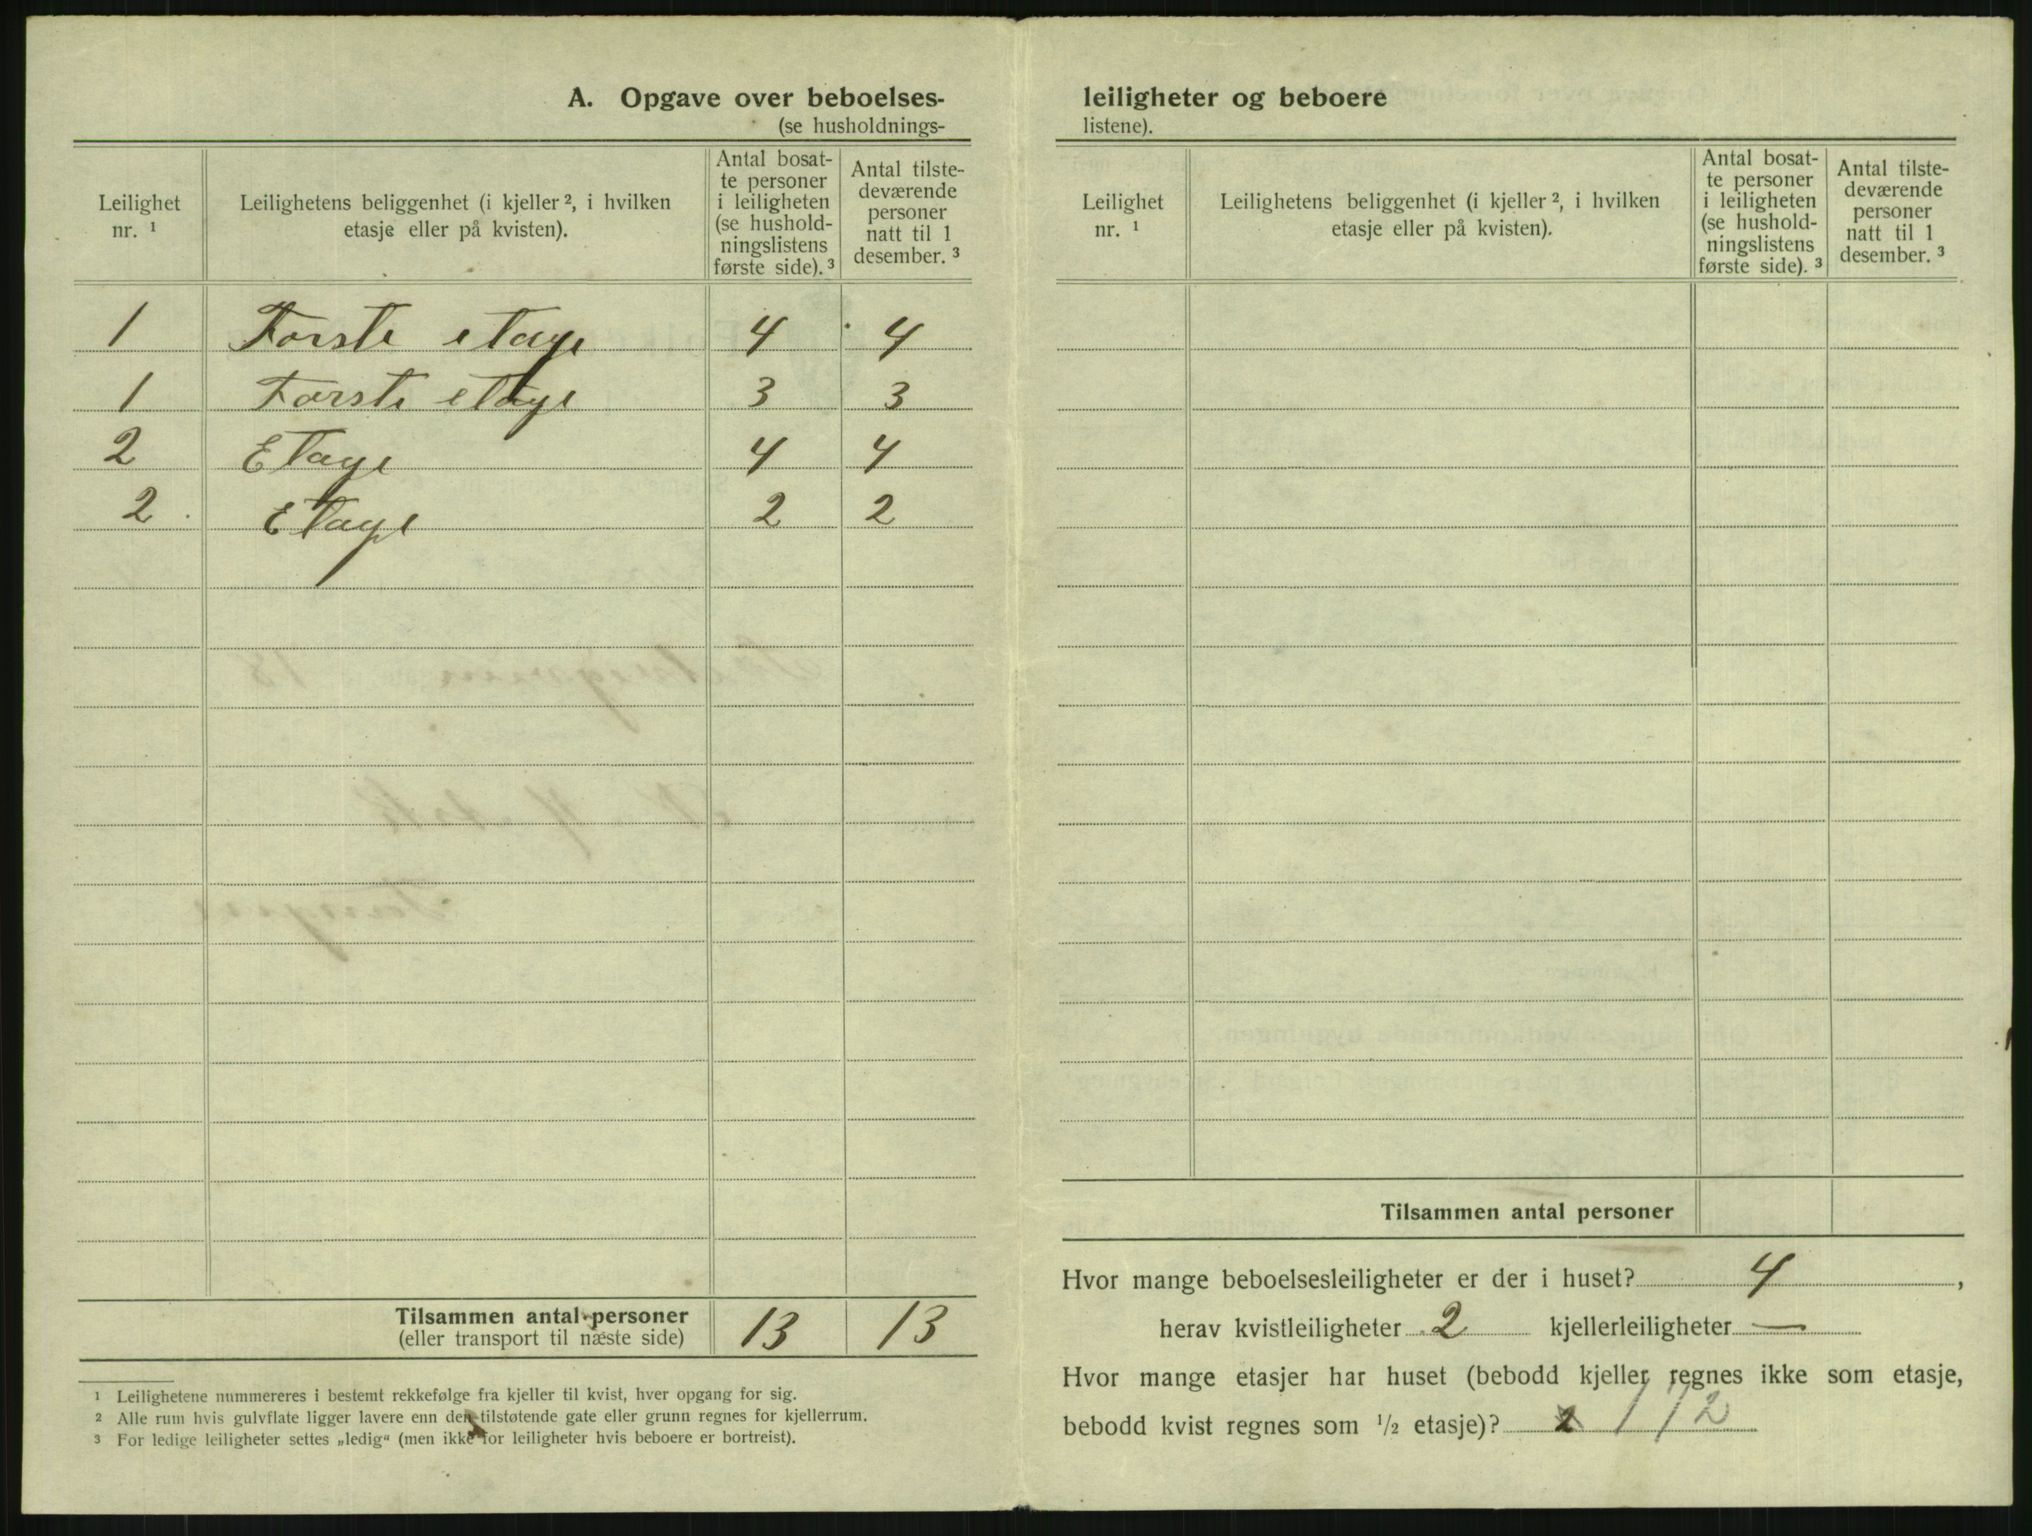 A. Opgave over beboelses-
(se husholdnings-
Leilighet
nr. ¹
Leilighetens beliggenhet (i kjeller ², i hvilken
etasje eller på kvisten).
Antal bosat-
te personer
i leiligheten
(se hushold-
ningslistens
første side). ³
Antal tilste-
deværende
personer
natt til 1
desember. ³
1 Første etage 4 4
1 Første etage 3 3
2 Etage 4 4
2 Etage 2 2
Tilsammen antal personer 13 13
(eller transport til næste side)
¹ Leilighetene nummereres i bestemt rekkefølge fra kjeller til kvist, hver opgang for sig.
² Alle rum hvis gulvflate ligger lavere enn den tilstøtende gate eller grunn regnes for kjellerrum.
³ For ledige leiligheter settes „ledig“ (men ikke for leiligheter hvis beboere er bortreist).
leiligheter og beboere
listene).
Leilighet
nr. ¹
Leilighetens beliggenhet (i kjeller ², i hvilken
etasje eller på kvisten).
Antal bosat-
te personer
i leiligheten
(se hushold-
ningslistens
første side). ³
Antal tilste-
deværende
personer
natt til 1
desember. ³
Tilsammen antal personer
Hvor mange beboelsesleiligheter er der i huset? 4,
herav kvistleiligheter 2 kjellerleiligheter —
Hvor mange etasjer har huset (bebodd kjeller regnes ikke som etasje,
bebodd kvist regnes som ½ etasje)? 1 1/2